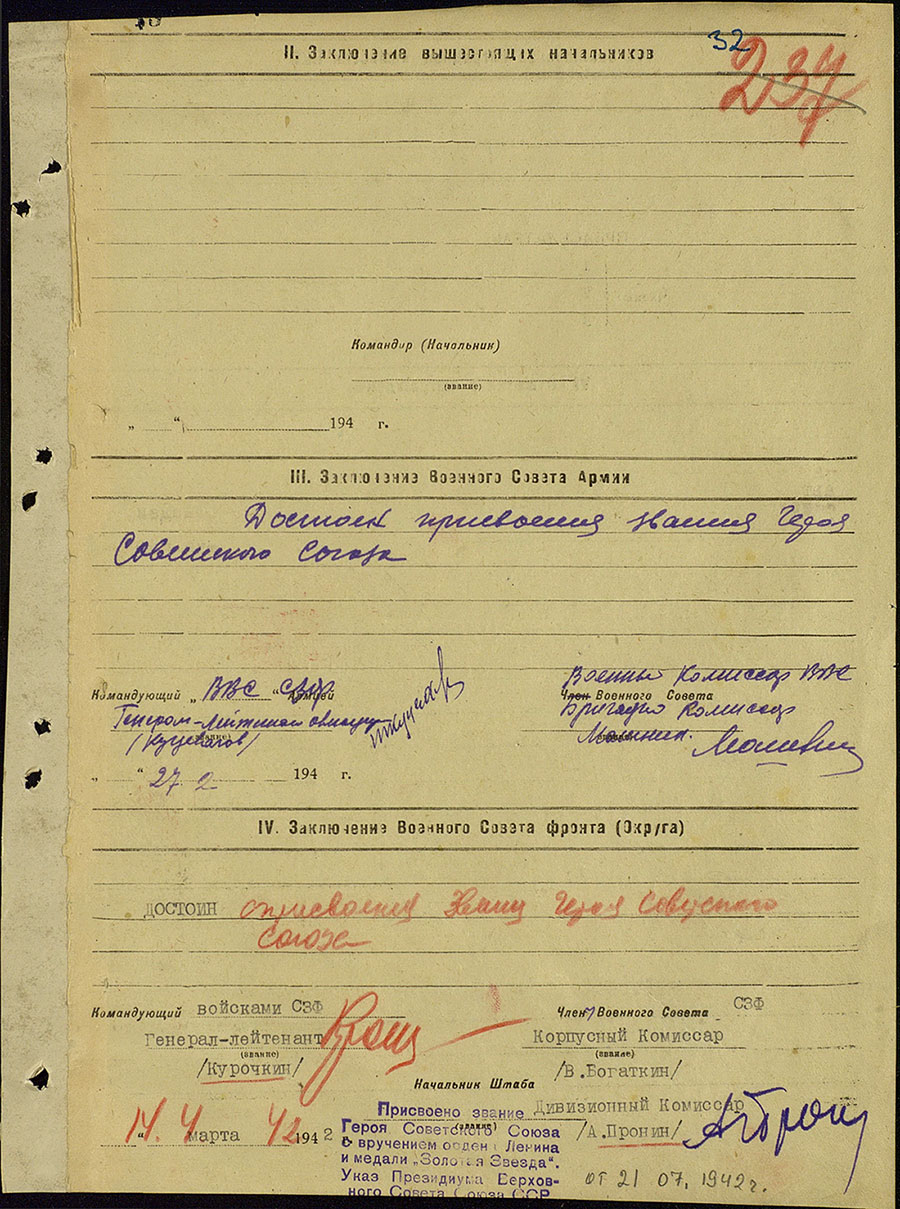 32
237
II. Заключение вышестоящих начальников
Командир (Начальник)
(звание)
„ “ 194 г.
III. Заключение Военного Совета Армии
Достоин присвоения звания Героя
Советского Союза
Командующий „ ВВС “ СЗФ
Армией
Генерал-лейтенант авиации
(звание)
/Куцевалов/
„ “ 27. 2 194 г.
Военный Комиссар ВВС
Член Военного Совета
Бригадн Комиссар
(звание)
IV. Заключение Военного Совета фронта (Округа)
ДОСТОИН присвоения звания Героя Советского
Союза
Командующий войсками СЗФ
Генерал-лейтенант
(звание)
/Курочкин/
Член Военного Совета СЗФ
Корпусный Комиссар
(звание)
/В.Богаткин/
Начальник Штаба
Дивизионный Комиссар
(звание)
/А.Пронин/
марта 1942
Присвоено звание
Героя Советского Союза
с вручением орден Ленина
и медали „Золотая Звезда“.
Указ Президиума Верхов-
ного Совета Союза ССР
от 21 07. 1942г.